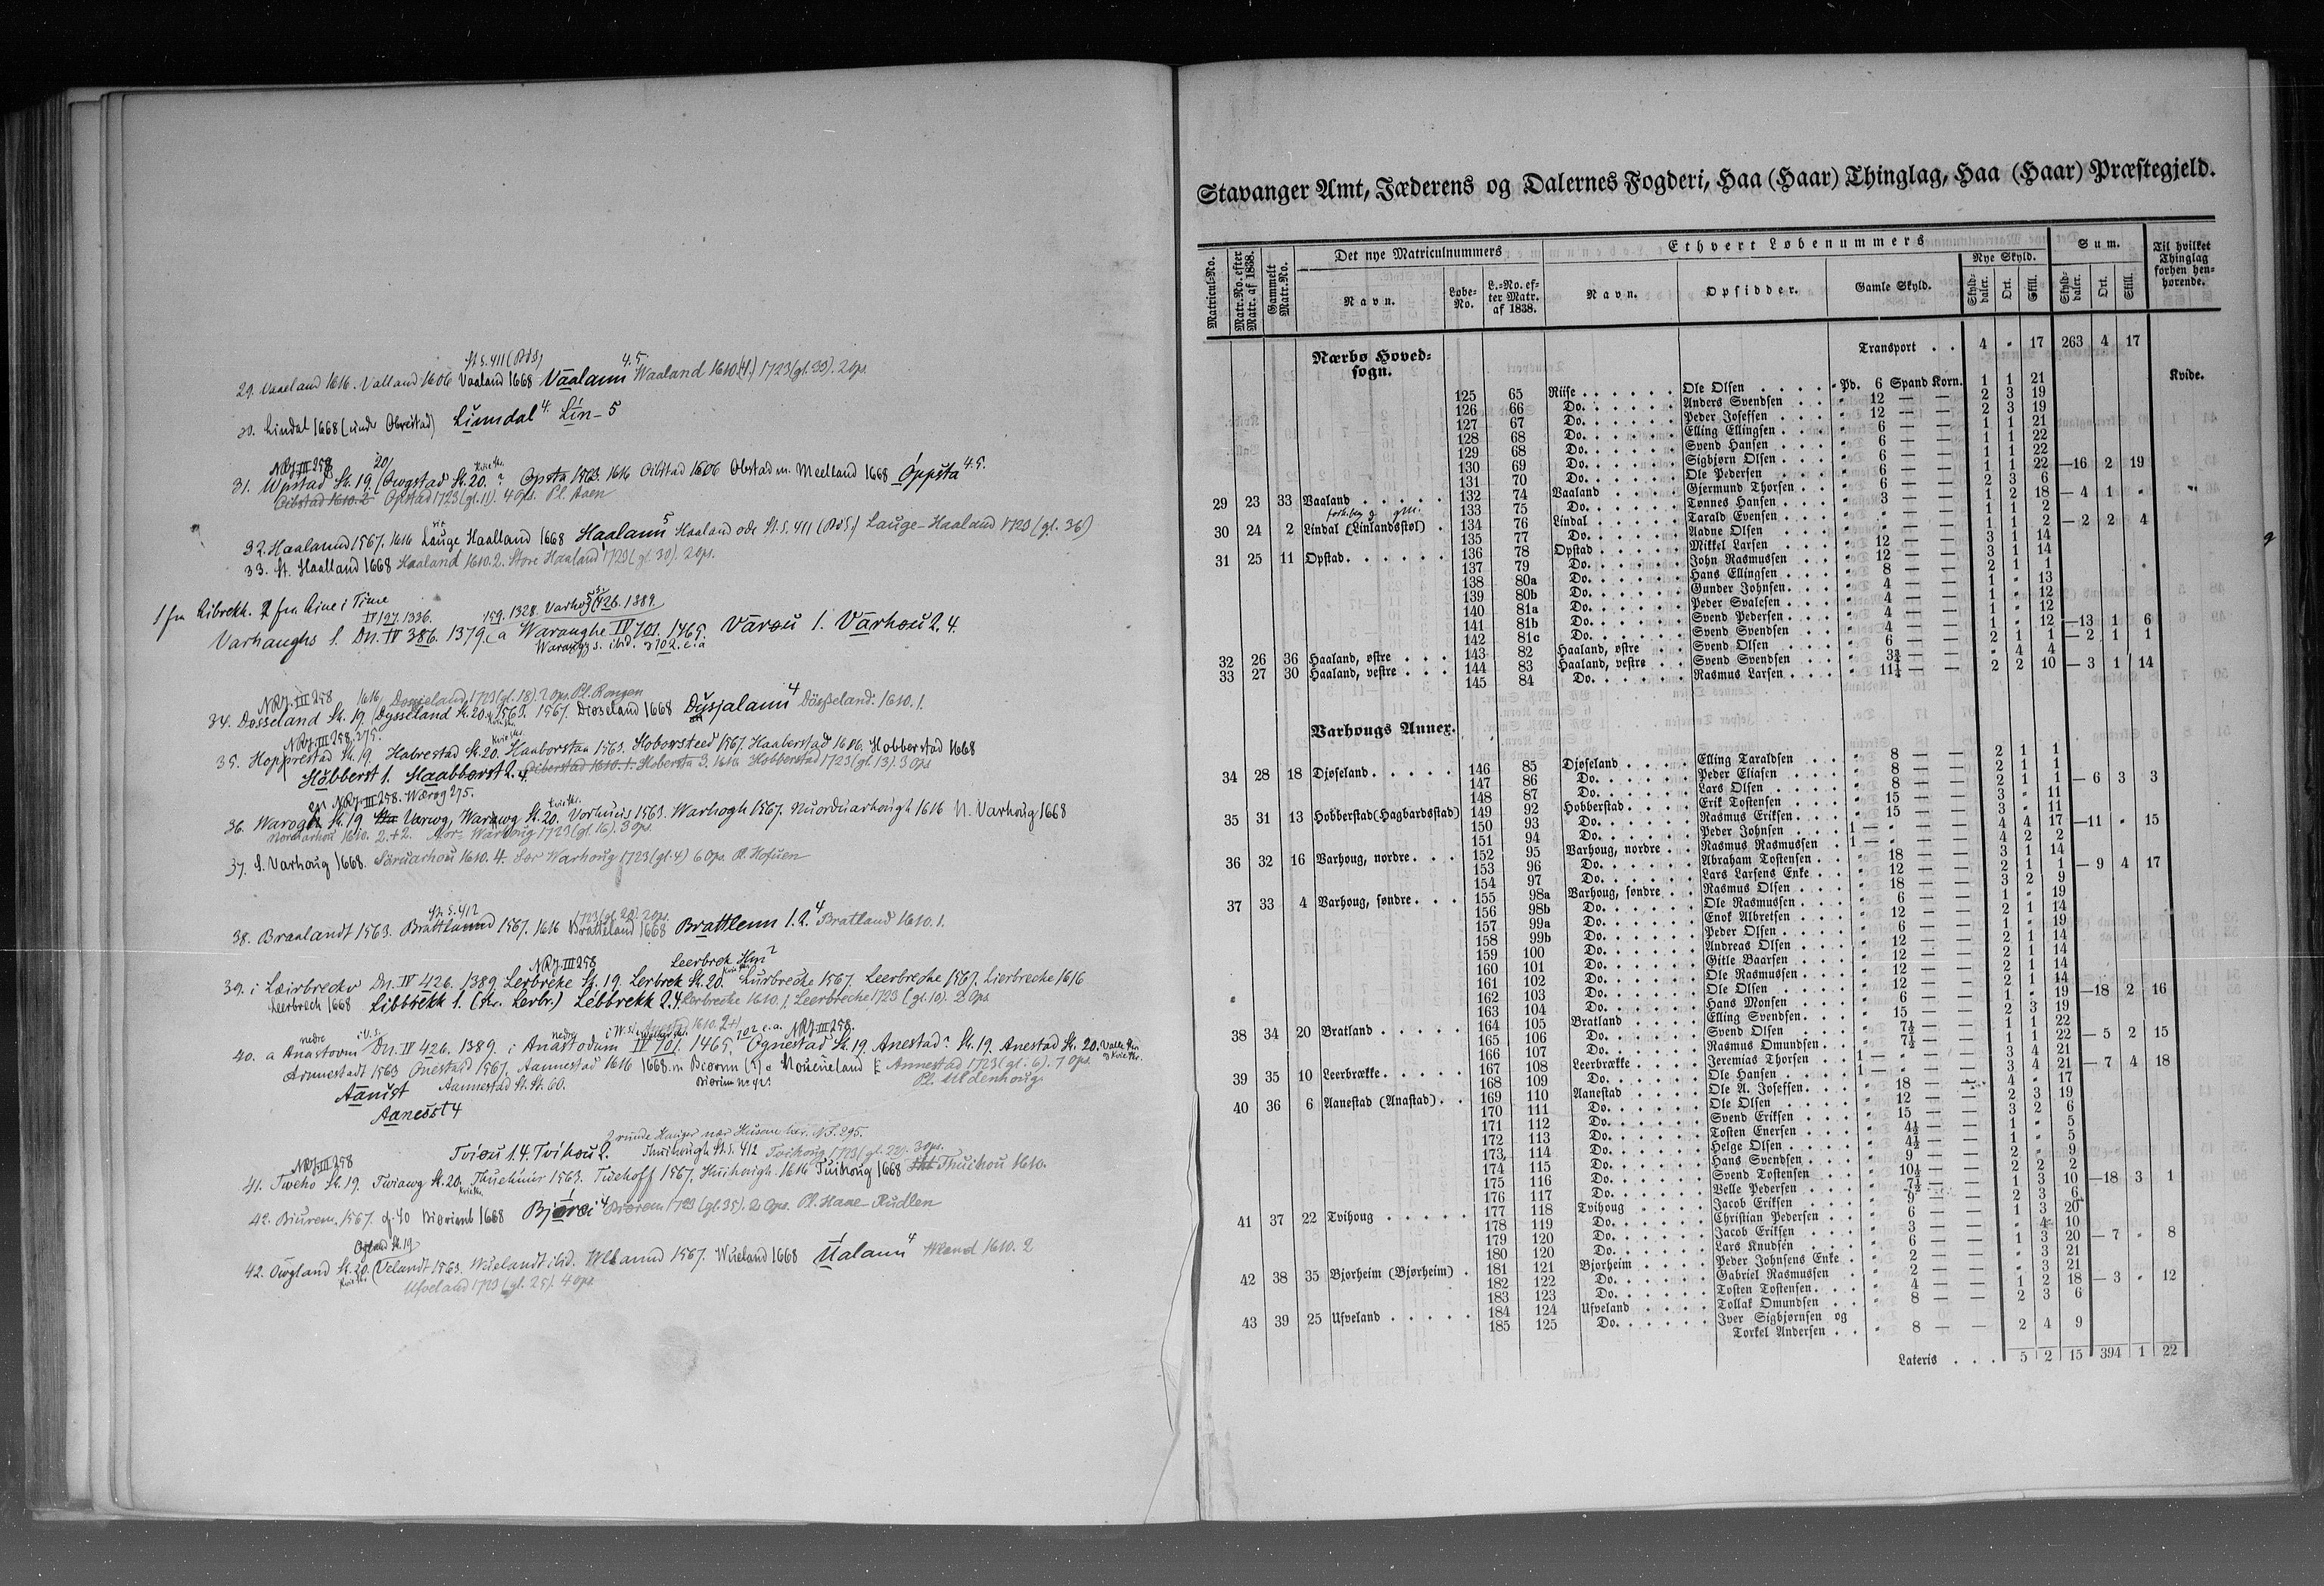 St. S. 411 (B d S)
29. Vaaeland 1616. Valland 1606 Vaaland 1668 Vaalann 4.5 Waaland 1610 (4.) 1723 (gl. 33). 2 ops.
30. Lindal 1668 (under Obrestad) Liumdal 4. Lín- 5
NRJ. III 258
31. Wpstad Sk. 19. (Owgstad Sk. 20. ? Opsta 1563. 1616 Oibstad 1606 Obstad m. Meelland 1668 Óppsta 4.5.
Oibstad 1610. 2 Opstad 1723 (gl. 11). 4 ops. Pl. Aaen
32. Haaland 1567. 1616 Lauge Haalland 1668 Haalann 5 Haaland øde St. S. 411 (BdS.) Lauge-Haaland 1723 (gl. 36)
33. St. Haalland 1668 Haaland 1610. 2. Store Haaland 1723 (gl. 30). 2 ops.
1 fra Librekk. 2 fra Line i Time
IV 197. 1336. 159. 1328. Varhog 426. 1389.
Varhaughs S. Dn. IV 386. 1379. a Waraughe IV 701. 1465. Varou 1. Varhou 2. 4.
NRJ. III 258 1616 Dosseland 1723 (gl. 18). 2 ops. Pl. Rongen
34. Dosseland Sk. 19. Dysseland Sk. 20. 1563. 1567. Diøseland 1668 Dysjalann 4 Døsseland. 1610. 1.
NRJ. III 258. 275.
35. Hopprestad Sk. 19. Habrestad Sk. 20. Haaborstaa 1563. Hoborsteed 1567. Haaberstad 1606. Hobberstad 1668
Hobberst 1. Haabborst 2. 4. Oiberstad 1610. 1. Hobersta 3. 1616 Hobberstad 1723 (gl. 13). 3 ops
NRJ. III 258. Wærog 275.
36. Warogh Sk. 19 Varwg, Warawg Sk. 20. Vorhuus 1563. Warhogh 1567. Nuorduarhough 1616 N. Varhoug 1668
Nordarhou 1610. 2. + 2. Nor-Warhoug 1723 (gl. 16). 3 ops.
37. S. Varhoug 1668. Søruarhou 1610. 4. Sør Warhoug 1723 (gl. 4) 6 ops. Pl. Hofuen
St. S. 412 1723 (gl. 20). 2 ops.
38. Braalandt 1563. Brattlannd 1567. 1616 Bratteland 1668 Brattlenn 1. 2. 4 Bratland 1610. 1.
NRJ. III 258
39. i Læirbrecku Dn. IV 426. 1389. Lerbreke Sk. 19. Lerbrek Sk. 20. Lurbreche 1567. Leerbreche 1567. Lierbreche 1616
Leerbrech 1668 Libbrekk 1. (Lerbr.) Lébbrekk 2. 4. Lerbreche 1610. 1. Leerbreche 1723 (gl. 10). 2 ops
nedre i V. S. nedre NRJ. III 258.
40. a Anastovm Dn. IV 426. 1389. i Anastodum IV 701. 1465. Ognestad Sk. 19. Anestad? Sk. 19. Anestad Sk. 20.
Armestadt 1563 Onestad 1567. Aannestad 1616 1668. m Biøorm (?) & Noueneland Annestad 1723 (gl. 6). 7 ops.
Pl. Uldenhoug
Aanist Aannestad St. St. 60.
Aanesst 4
2 runde Hauger nær Husene her. N. F. 295.
Tviou 1. 4. Tvihou 2. Thuihough St. S. 412 Tvihoug 1723 (gl. 22). 3 ops.
NRJ. III 258
41. Tweho Sk. 19. Twiawg Sk. 20. Thuehuus 1563. Twehoff 1567. Thuihough 1616 Tuihoug 1668 Thuihou 1610.
42. Biurem 1567. cf. 40 Biøriemb 1668 Bjørei 4 Biørem 1723 (gl. 35). 2 ops. Pl. Hane-Rudlen
Ogland Sk. 19
42. Owgland Sk. 20. (Velandt 1563. Wuelandt ibid. Wlannd 1567. Wueland 1668 Úalann 4 Wland 1610. 2
Ufveland 1723 (gl. 25). 4 ops.
Stavanger Amt, Jæderens og Dalernes Fogderi, Haa (Haar) Thinglag, Haa (Haar) Præstegjeld.
Matricul-No. | Matr.-No. efter Matr. af 1838. | Gammelt Matr.-No. | Det nye Matriculnummers | Ethvert Løbenummers | Sum. | Til hvilket Thinglag forhen henhørende.
Navn. | Løbe-No. | L.-No. efter Matr. af 1838. | Navn. | Opsidder. | Gamle Skyld. | Nye Skyld. Skylddaler. Ort. Skill. | Skylddaler. Ort. Skill.
Nærbø Hovedsogn. Transport . . 4 „ 17 263 4 17
125 65 Riise Ole Olsen „ Pd. 6 Spand Korn. 1 1 21 Kvide.
126 66 Do. Anders Svendsen „ 12 — — 2 3 19
127 67 Do. Peder Josefsen „ 12 — — 2 3 19
128 68 Do. Elling Ellingsen „ 6 — — 1 1 21
129 68 Do. Svend Hansen „ 6 — — 1 1 22
130 69 Do. Sigbjørn Olsen „ 6 — — 1 1 22
131 70 Do. Ole Pedersen „ 6 — — 1 1 22 —16 2 19
29 23 33 Vaaland 132 74 Vaaland Gjermund Thorsen „ 6 — — 2 3 6
133 75 Do. Tønnes Hansen „ 3 — — 1 2 18 — 4 1 „
30 24 2 Lindal (Linlandsstøl) 134 76 Lindal Tarald Evensen „ 1 1 2
135 77 Do. Aadne Olsen „ 1 1 2 — 2 2 4
31 25 11 Opstad 136 78 Opstad Mikkel Larsen „ 12 — — 3 1 14
137 79 Do. John Rasmussen „ 12 — — 3 1 14
138 80a Do. Hans Ellingsen „ 8 — — 2 1 1
139 80b Do. Gunder Johnsen „ 4 — — 1 „ 13
140 81a Do. Peder Svalesen „ 4 — — 1 „ 12
141 81b Do. Svend Pedersen „ 4 — — 1 „ 12
142 81c Do. Svend Svendsen „ 4 — — 1 „ 12 —13 1 6
32 26 36 Haaland, østre 143 82 Haaland, østre Svend Olsen „ 6 — — 2 1 1 — 2 1 1
33 27 30 Haaland, vestre 144 83 Haaland, vestre Svend Svendsen „ 3¾ — — „ 4 4
145 84 Do. Rasmus Larsen „ 11¼ — — 2 2 10 — 3 1 14
Varhougs Annex.
34 28 18 Djøseland 146 85 Djøseland Elling Taraldsen „ 8 — — 2 1 1
147 86 Do. Peder Eliasen „ 8 — — 2 1 1
148 87 Do. Lars Olsen „ 8 — — 2 1 1 — 6 3 3
35 31 13 Hobberstad (Hagbardsstad) 149 92 Hobberstad Erik Tostensen „ 15 — — 3 „ 11
150 93 Do. Rasmus Eriksen „ 15 — — 3 „ 11
151 94 Do. Peder Johnsen 1 — „ — — 4 4 17 —11 „ 15
36 32 16 Varhoug, nordre 152 95 Varhoug, nordre Rasmus Rasmussen 1 — „ — — 4 2 2
153 96 Do. Abraham Tostensen „ 18 — — 3 1 14
154 97 Do. Lars Larsens Enke „ 12 — — 2 1 1 — 9 4 17
37 33 4 Varhoug, søndre 155 98a Varhoug, søndre Rasmus Olsen „ 18 — — 3 2 9
156 98b Do. Ole Rasmussen „ 6 — — 1 „ 19
157 99a Do. Enok Albretsen „ 12 — — 2 1 14
158 99b Do. Peder Olsen „ 6 — — 1 „ 19
159 100 Do. Andreas Olsen „ 12 — — 2 1 14
160 101 Do. Gitle Baarsen „ 12 — — 2 1 14
161 102 Do. Ole Rasmussen „ 12 — — 2 1 14
162 103 Do. Ole Olsen „ 12 — — 2 1 14
163 104 Do. Hans Monsen „ 6 — — 1 „ 19 —18 2 16
38 34 20 Bratland 164 105 Bratland Elling Svendsen „ 15 — — 2 3 19
165 106 Do. Svend Olsen „ 7½ — — 1 1 22
166 107 Do. Rasmus Omundsen „ 7½ — — 1 1 22 — 5 2 15
39 35 10 Leerbrække 167 108 Leerbrække Jeremias Thorsen 1 — „ — — 3 4 21
168 109 Do. Ole Hansen 1 — „ — — 3 4 21 — 7 4 18
40 36 6 Aanestad (Anastad) 169 110 Aanestad Ole A. Josefsen „ 18 — — 4 „ 17
170 111 Do. Ole Olsen „ 12 — — 2 3 19
171 112 Do. Svend Eriksen „ 15 — — 3 2 6
172 113 Do. Tosten Enersen „ 4½ — — 1 „ 5
173 114 Do. Helge Olsen „ 4½ — — 1 „ 5
174 115 Do. Hans Svendsen „ 9 — — 2 „ 9
175 116 Do. Svend Tostensen „ 10½ — — 2 2 2
176 117 Do. Velle Pedersen „ 7½ — — 1 3 10 —18 3 1
41 37 22 Tvihoug 177 118 Tvihoug Jacob Eriksen „ 9 — — 2 3 6
178 119 Do. Christian Pedersen „ 6 — — 1 3 20
179 120 Do. Jacob Eriksen „ 3 — — „ 4 10
180 120 Do. Lars Knudsen „ 6 — — 1 3 20 — 7 „ 8
42 38 35 Bjorheim (Bjørheim) 181 121 Bjorheim Peder Johnsens Enke „ 2 — — „ 3 21
182 122 Do. Gabriel Rasmussen „ 2 — — „ 3 21
183 123 Do. Tosten Tostensen „ 4 — — 1 2 18 — 3 „ 12
43 39 25 Ufveland 184 124 Ufveland Tollak Omundsen „ 8 — — 2 3 6
185 125 Do. Iver Sigbjørnsen og
Torkel Andersen „ 8 — — 2 4 9
Lateris . . . 5 2 15 394 1 22